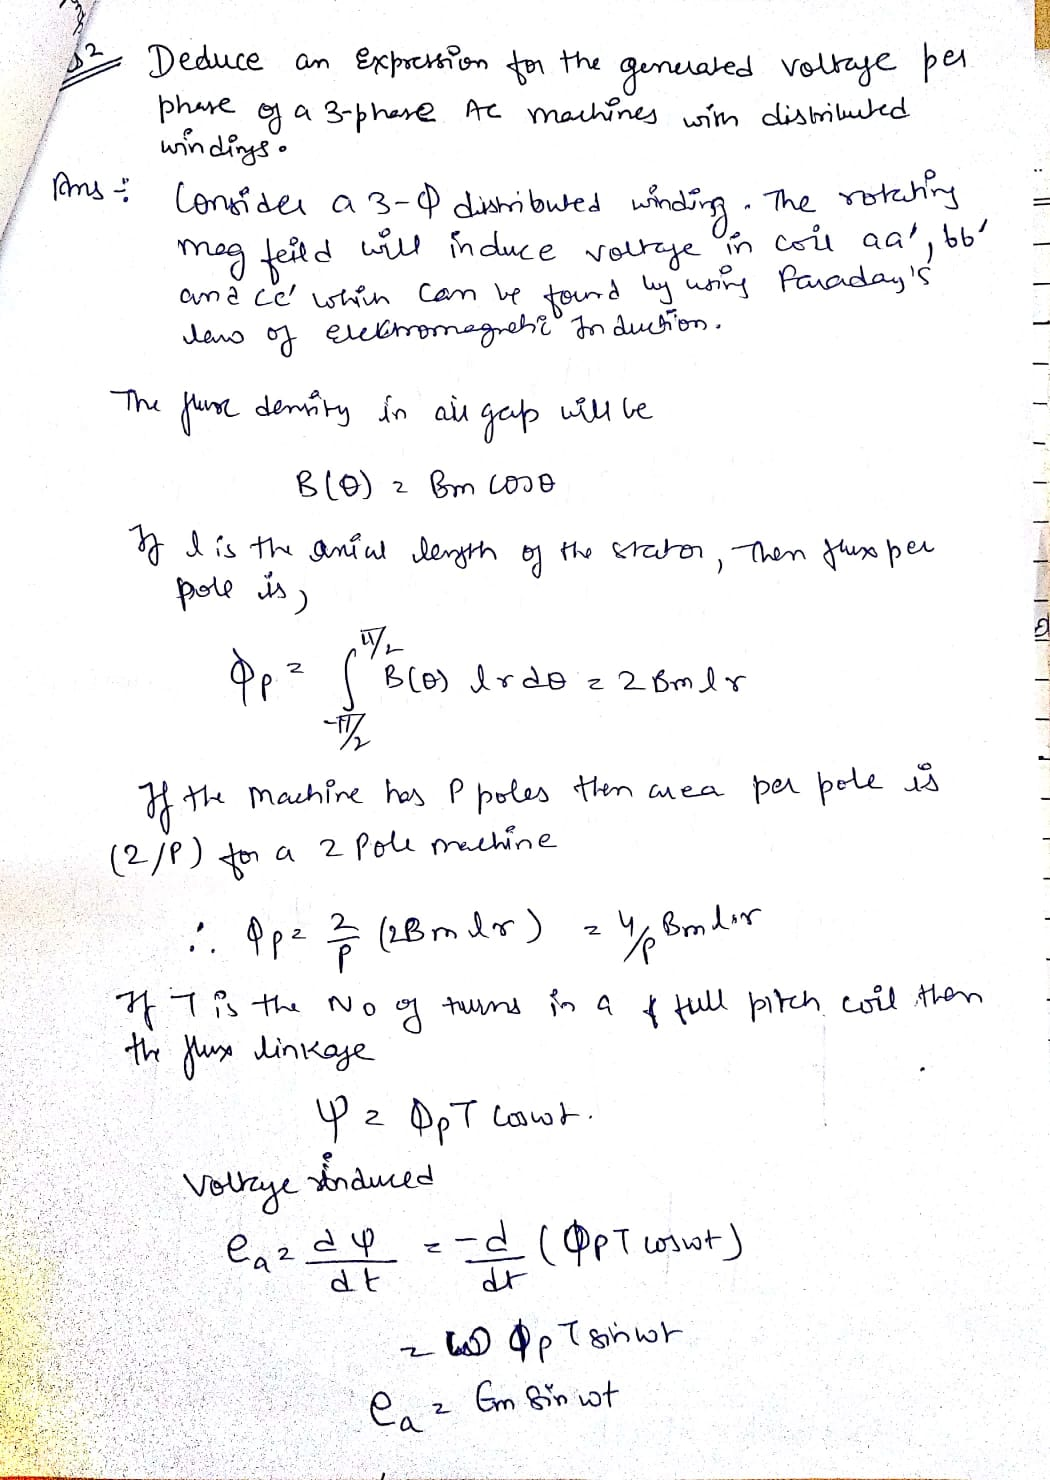 Q2 Deduce an Expression for the generated voltage per
phase of a 3-phase AC machines with distributed
windings.
Ans : Consider a 3-Φ distributed winding. The rotating
mag feild will induce voltage in coil aa', bb'
and cc' which can be found by using Faraday's
law of Elektromagnetic Induction.
The flux density in air gap will be
B(θ) = Bm cosθ
If l is the axial length of the stator, Then flux per
pole is,
Φp = ∫_{-π/2}^{π/2} B(θ) l r dθ = 2 Bm l r
If the machine has P poles then area per pole is
(2/P) for a 2 Pole machine
∴ Φp = 2/P (2Bm l r) = 4/P Bm l.r
If T is the No of turns in a full pitch coil then
the flux linkage
Ψ = Φp T cosωt.
Voltage induced
ea = dΨ/dt = -d/dt (Φp T cosωt)
= ω Φp T sinωt
ea = Em Sin ωt